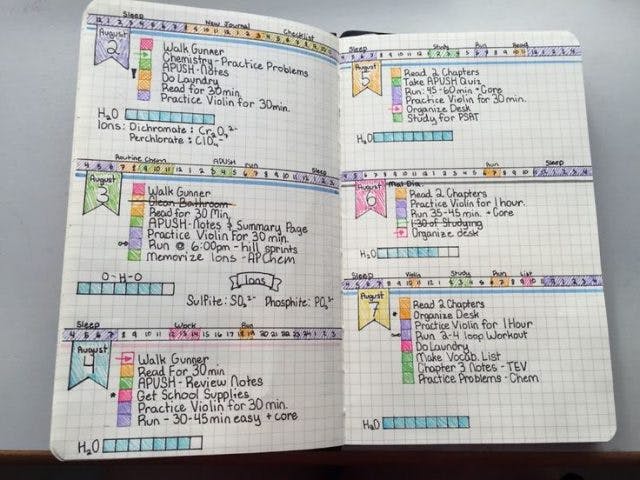 Sleep
New Journal
Checklist
August
2
Walk Gunner
Chemistry-Practice Problems
! APUSH-Notes
Do Laundry
Read for 30min.
Practice Violin for 30min.
H₂O
Ions: Dichromate: Cr₂O₇²⁻
Perchlorate: ClO₄⁻
Routine Chem
APUSH
run
Sleep
August
3
Walk Gunner
Clean Bathroom
Read for 30 Min
APUSH-Notes & Summary Page
Practice Violin for 30 min.
Run @ 6:00pm - hill sprints
Memorize Ions - AP Chem
O-H-O
Ions
Sulfite: SO₃²⁻ Phosphite: PO₃³⁻
Sleep
Work
Run
7 8 9 10 11 12 13 14 15 16 17 18 19 20 21 22 23 24 1 2 3
August
4
Walk Gunner
Read For 30min
APUSH-Review Notes
* Get School Supplies
Practice Violin for 30 min.
Run - 30-45min easy + core
H₂O
Sleep
Study
Run
Read
August
5
Read 2 Chapters
Take APUSH Quiz
Run: 45-60min + Core
Practice Violin for 30 min.
Organize Desk
Study for PSAT
H₂O
Run
Sleep
August
6
Read 2 Chapters
Practice Violin for 1 hour.
Run 35-45 min. + Core
1:30 of Studying
Organize desk
H₂O
Sleep
Violin
Study
Run
List
August
7
Read 2 Chapters
* Organize Desk
Practice Violin for 1 Hour
Run 2-4 loop Workout
Do Laundry
Make Vocab. List
Chapter 3 Notes - TEV
Practice Problems - Chem
H₂O